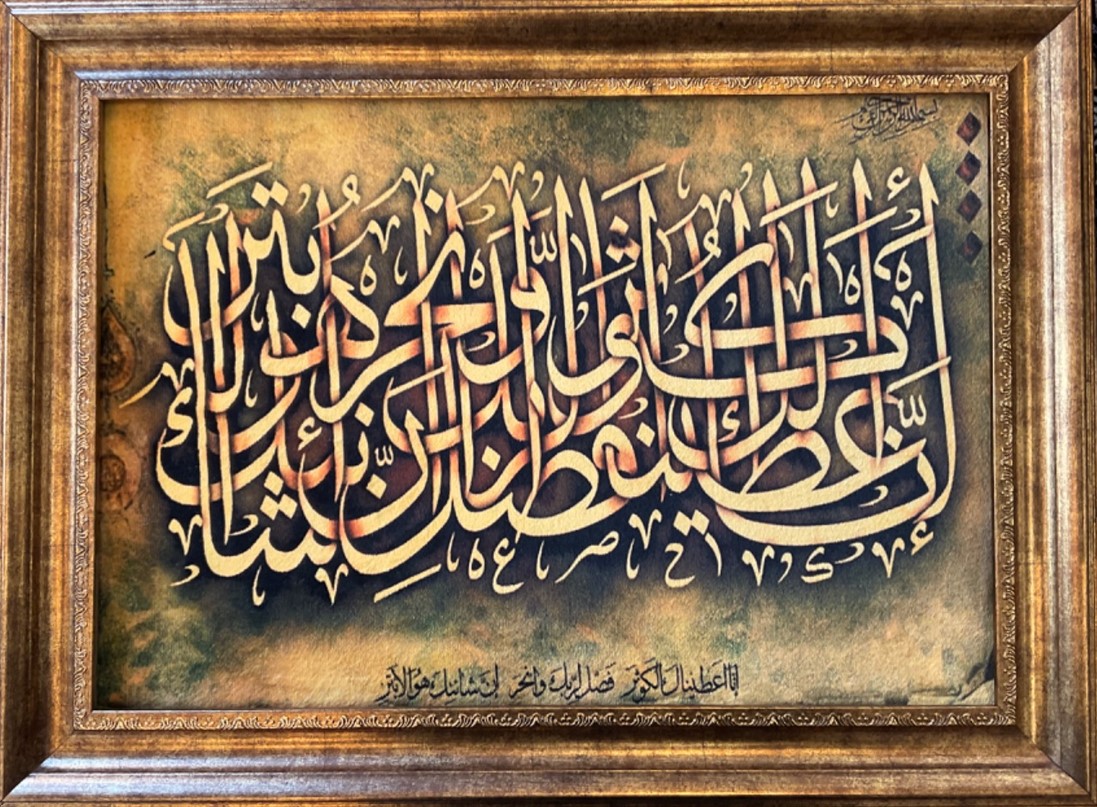 بسم الله الرحمن الرحيم
إنا أعطيناك الكوثر فصل لربك وانحر إن شانئك هو الأبتر
انا اعطیناك الكوثر فصل لربك وانحر ان شانئك هو الابتر